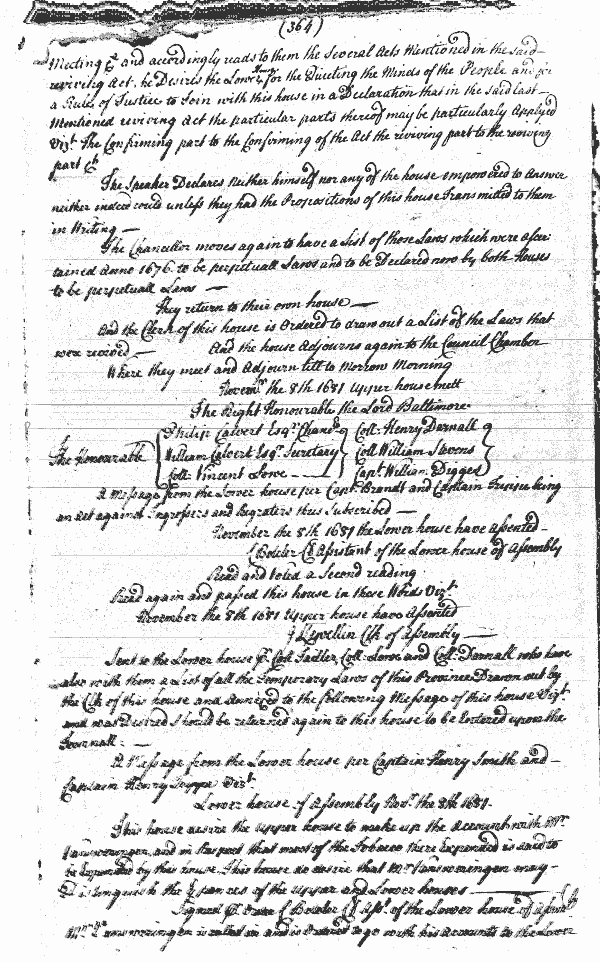 (364)
Meeting &c and accordingly reads to them the Several Acts Mentioned in the said
reviving Act, he Desires the Lower house for the Quieting the Minds of the People and for
a Rule of Justice to Join with this house in a Declaration that in the said last
Mentioned reviving Act the particular parts thereof may be particularly Applyed
Vizt. The Confirming part to the Confirming of the Act the reviving part to the reviving
part &c
The Speaker Declares neither himself nor any of the house empowered to Answer
neither indeed could unless they had the Propositions of this house Transmitted to them
in Writing —
The Chancellor moves again to have a List of those Laws which were ascer
tained Anno 1676. to be perpetuall Laws and to be Declared now by both Houses
to be perpetuall Laws —
They return to their own house —
And the Clerk of this house is Ordered to draw out a List of the Laws that
were revived — And the house Adjourns again to the Council Chamber
Where they meet and Adjourn till to Morrow Morning
Novemr. the 8th 1681 Upper house mett
The Right Honourable the Lord Baltimore
The Honourable Philip Calvert Esqr. Chancr. Coll: Henry Darnall
William Calvert Esqr. Secretary Coll William Stevens
Coll: Vincent Lowe Capt William Digges
A Message from the Lower house per Capt. Brandt and Captain being
an Act against Ingrossers and Regraters thus Subscribed —
November the 8th 1681 the Lower house have Assented —
Boteler Cl Assistant of the Lower house of Assembly
Read and voted a Second reading
Read again and passed this house in these Words Vizt.
November the 8th 1681 Upper house have Assented
J Llewellin Clk of Assembly —
Sent to the Lower house Pr. Coll Tailler, Coll: Lowe and Coll: Darnall who have
also with them a List of all the Temporary Laws of this Province Drawn out by
the Clk of this house and Annexed to the following Message of this house Vizt.
and was Desired Should be returned again to this house to be Entered upon the
Journall: —
A Message from the Lower house per Captain Henry Smith and
Captain Henry Vizt.
Lower house of Assembly Novr. the 8th 1681.
This house desire the upper house to make up the Account with Mr.
Vansweringen, and in Respect that most of the Tobacco there Expended is said to
be Expended by this house. This house do desire that Mr Vansweringen may
Distinguish the Expences of the Upper and Lower houses —
Signed P Order C Boteler Cl Asst. of the Lower house of Assembly
Mr. Vansweringen is called in and is Ordered to go with his Accounts to the Lower